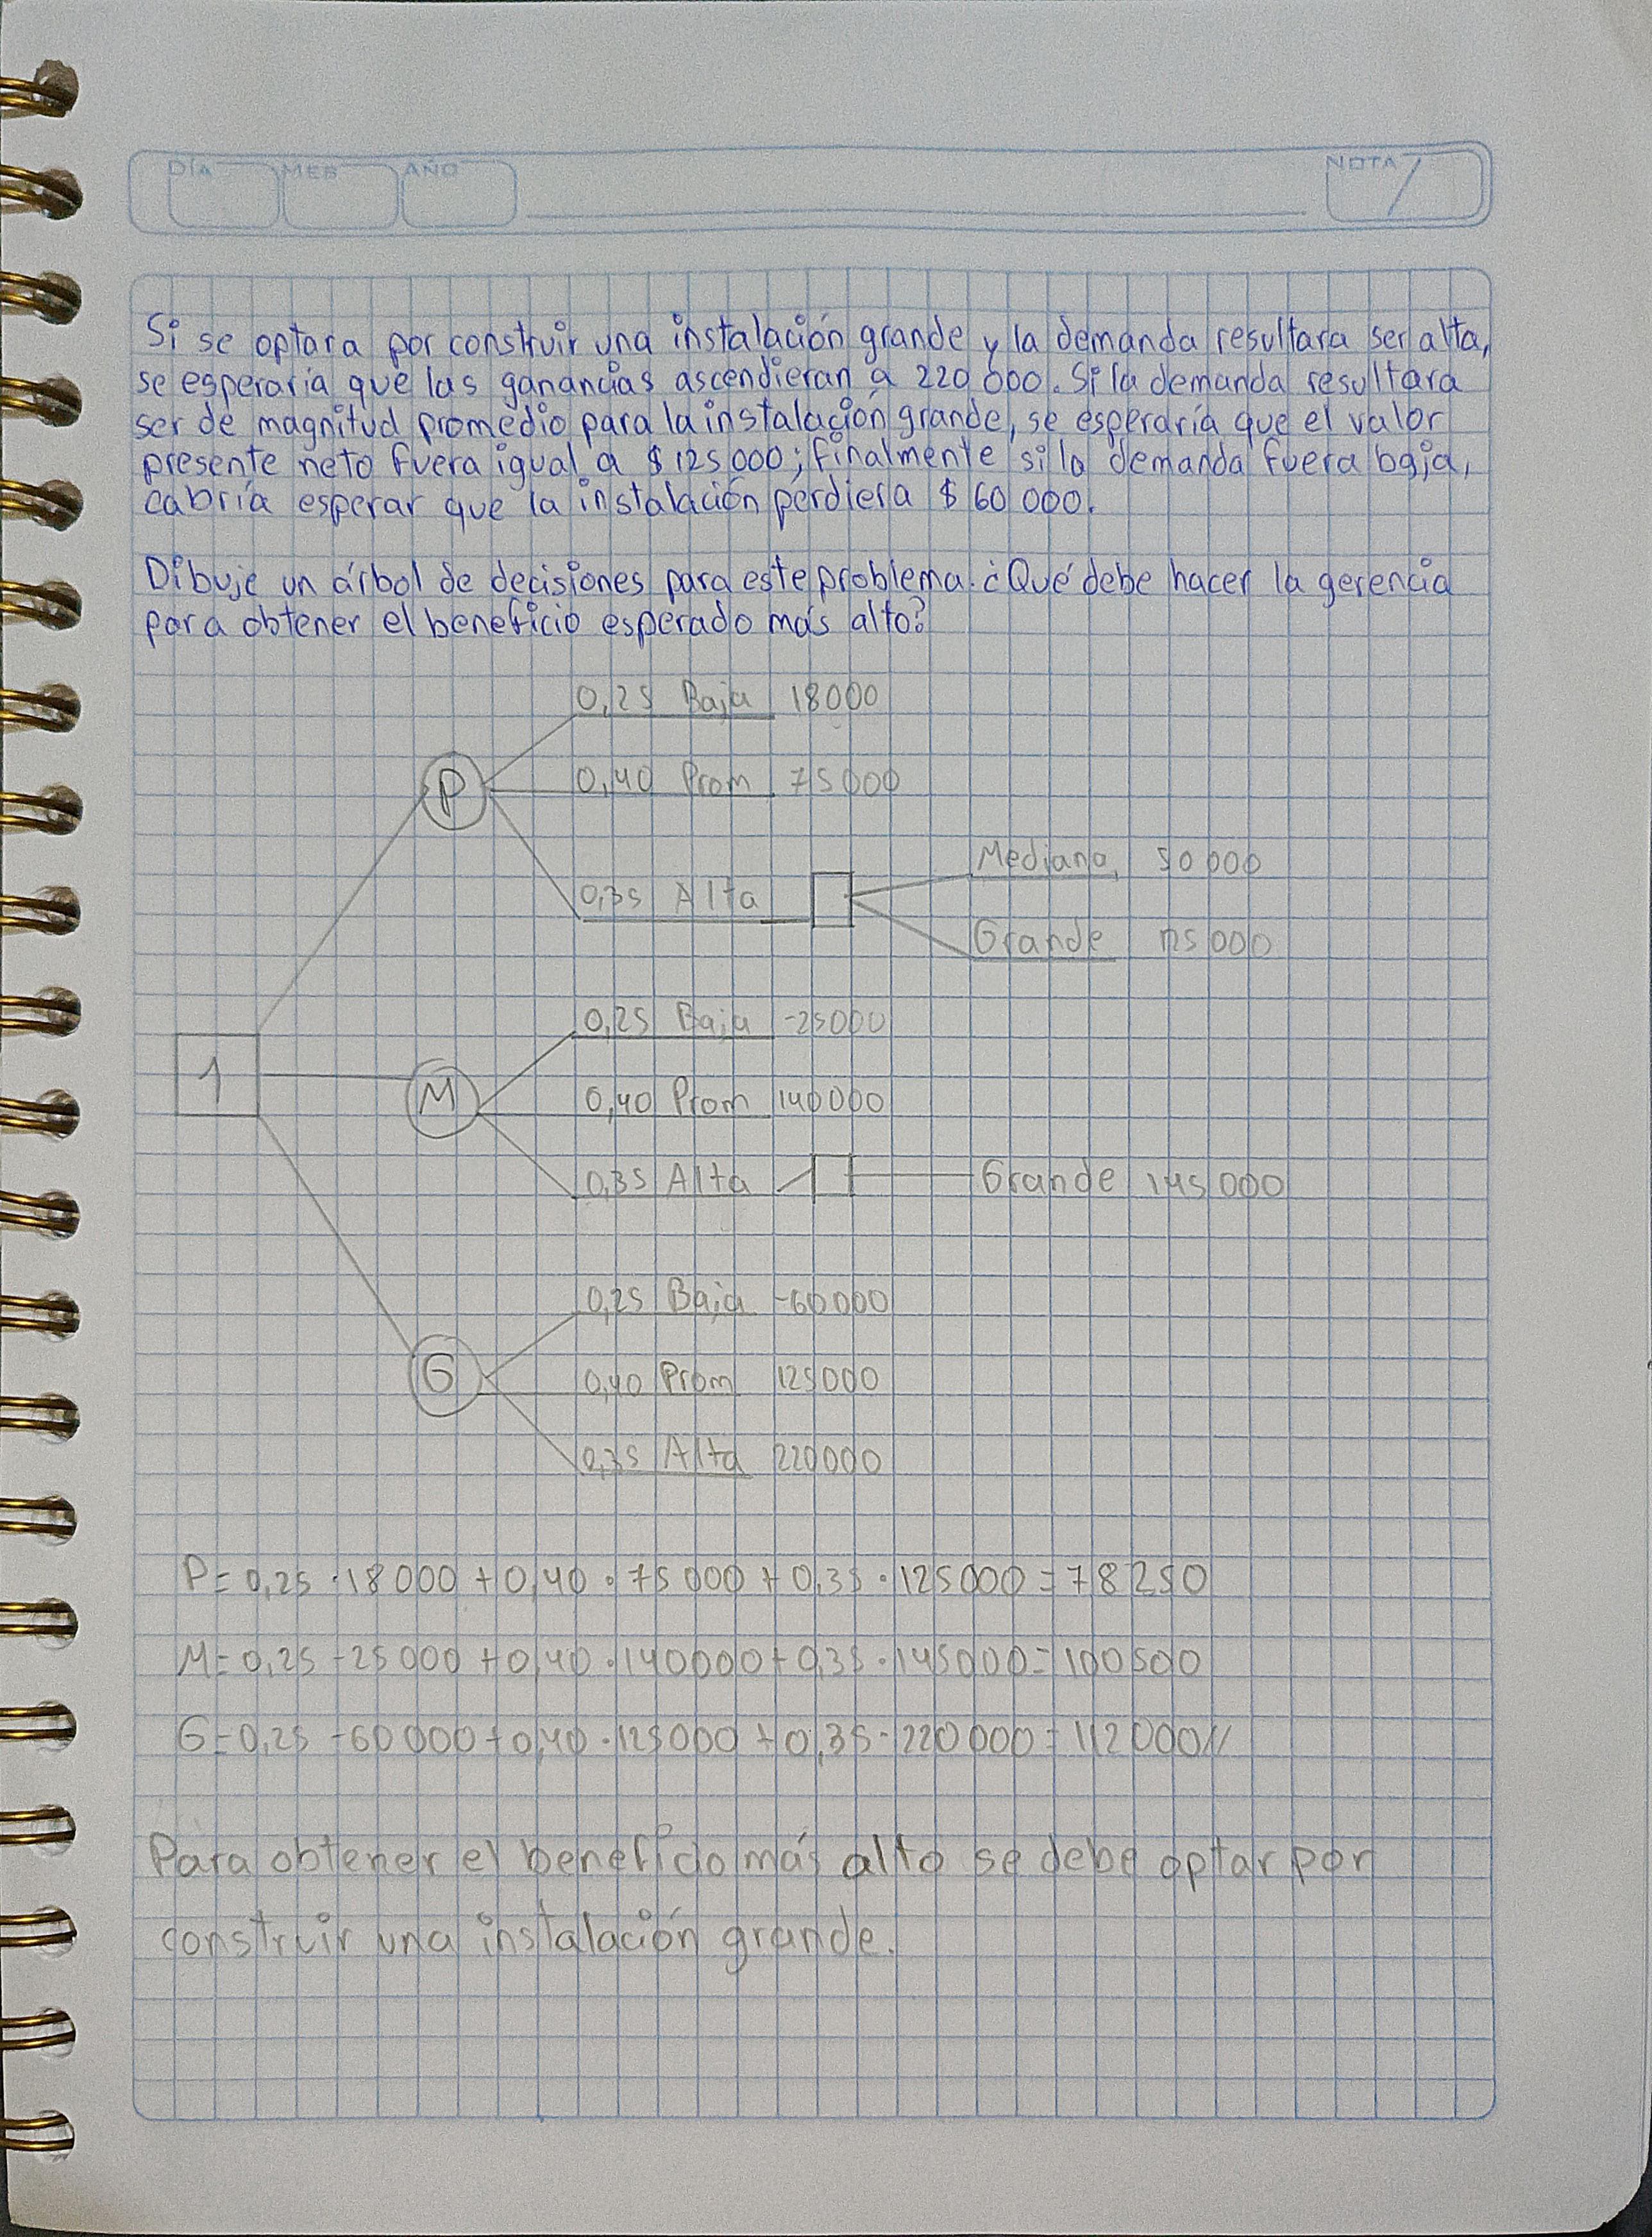 DÍA MES AÑO NOTA
Si se optara por construir una instalación grande y la demanda resultara ser alta,
se esperaría que las ganancias ascendieran a 220 000. Si la demanda resultara
ser de magnitud promedio para la instalación grande, se esperaría que el valor
presente neto fuera igual a $ 125 000; finalmente si la demanda fuera baja,
cabría esperar que la instalación perdiera $ 60 000.
Dibuje un árbol de decisiones para este problema. ¿Qué debe hacer la gerencia
para obtener el beneficio esperado más alto?
0,25 Baja 18000
P 0,40 Prom 75000
Mediana 50 000
0,35 Alta
Grande 125 000
0,25 Baja -25000
1
M 0,40 Prom 140000
0,35 Alta Grande 145 000
0,25 Baja -60000
G 0,40 Prom 125000
0,35 Alta 220000
P= 0,25 · 18 000 + 0,40 · 75 000 + 0,35 · 125000 = 78250
M= 0,25 -25 000 + 0,40 · 140000 + 0,35 · 145000 = 100500
G= 0,25 -60 000 + 0,40 · 125000 + 0,35 · 220000 = 112000//
Para obtener el beneficio más alto se debe optar por
construir una instalación grande.